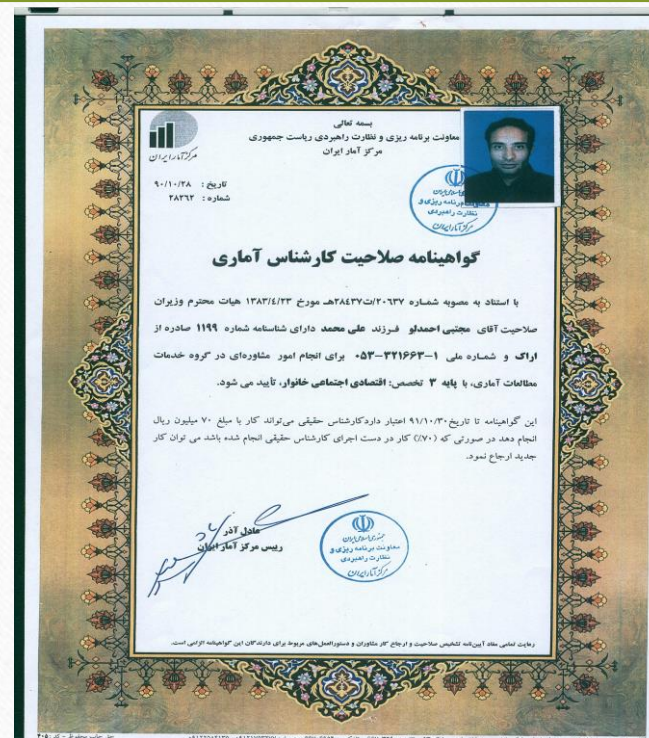 بسمه تعالی
معاونت برنامه ریزی و نظارت راهبردی ریاست جمهوری
مرکز آمار ایران
مرکز آمار ایران
تاریخ : ۹۰/۱۰/۲۸
شماره : ۲۸۲۶۲
نظارت راهبردی
مرکز آمار ایران
گواهینامه صلاحیت کارشناس آماری
با استناد به مصوبه شماره ۲۰٦۳۷/ت۲۸٤۳۷هـ مورخ ۱۳۸۳/٤/۲۳ هیات محترم وزیران
صلاحیت آقای مجتبی احمدلو فرزند علی محمد دارای شناسنامه شماره ۱۱۹۹ صادره از
اراک و شماره ملی ۱-۳۲۱۶۶۳-۰۵۳ برای انجام امور مشاوره‌ای در گروه خدمات
مطالعات آماری، با پایه ۳ تخصص: اقتصادی اجتماعی خانوار، تأیید می شود.
این گواهینامه تا تاریخ ۹۱/۱۰/۳۰ اعتبار دارد کارشناس حقیقی می‌تواند کار با مبلغ ۷۰ میلیون ریال
انجام دهد در صورتی که (۷۰٪) کار در دست اجرای کارشناس حقیقی انجام شده باشد می توان کار
جدید ارجاع نمود.
عادل آذر
رییس مرکز آمار ایران
جمهوری اسلامی ایران
معاونت برنامه ریزی و
نظارت راهبردی
مرکز آمار ایران
رعایت تمامی مفاد آیین‌نامه تشخیص صلاحیت و ارجاع کار مشاوران و دستورالعمل‌های مربوط برای دارندگان این گواهینامه الزامی است.